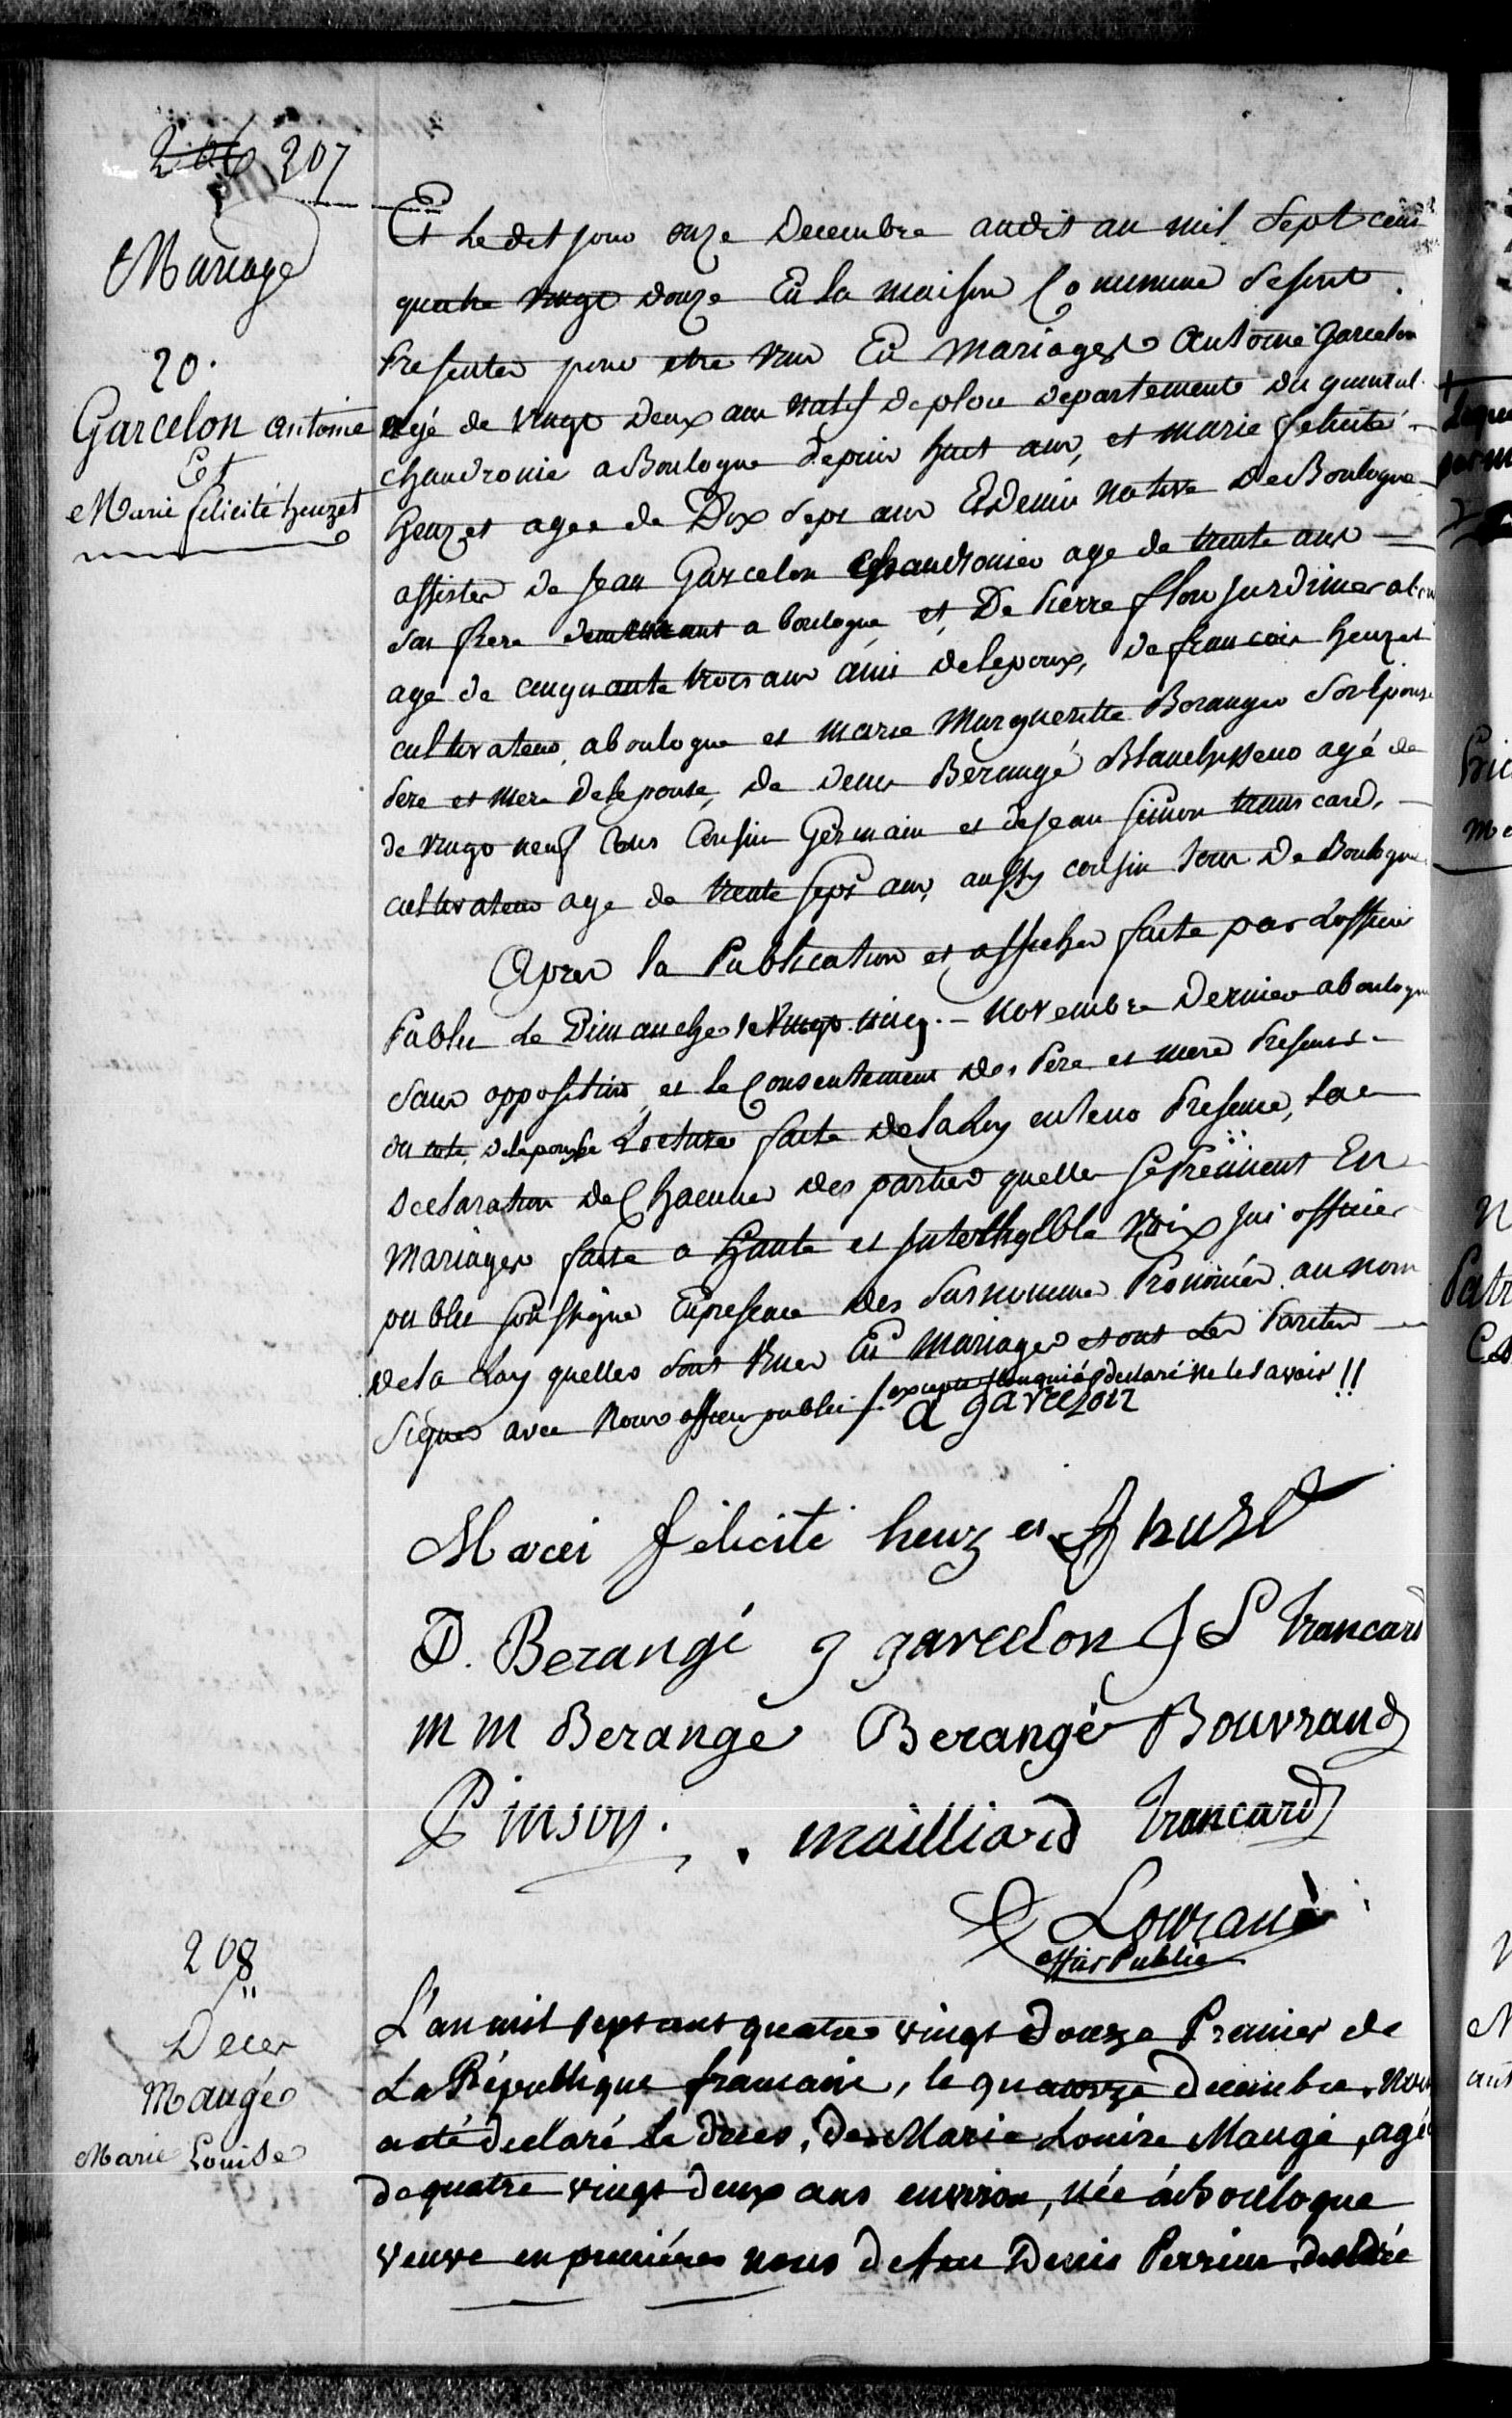 207
Mariage
20.
Garcelon antoine
Et
Marie felicité heuzet
Et Le dit jour onze Decembre audit an mil Sept cens
quatre vingt douze En La maison Commune se sont
Presentés pour etre unis En mariages antoine Garcelon
agé de vingt Deux ans natif de departement du
chaudronie a Boulogne depuis huit ans, et marie felicité
heuzet agée de Dix Sept ans Et Demie native De Boulogne
assistés de Jean Garcelon chaudronier age de trente ans
son frere demeurant a boulogne et De Pierre flou jardinier
age de cinquante trois ans ami de lepoux, de francois heuzet
cultivateur, a boulogne et marie Marguerite Berangé son Epouse
Pere et Mere de lepouse, de Denis Berangé Blanchisseur agé de
de vingt neuf ans Cousin Germain et de Jean Simon trancard,
cultivateur age de trente sept ans, aussy cousin tous De Boulogne
Apres la Publication et affiches faite par Lofficier
Public Le Dimanche vingt cinq Novembre Dernier a boulogne
sans opposition et le Consentement des Pere et mere Presents
du coté de lepouse Lecture faite de la Loy en leur Presence, la
Declaration de Chacune des parties quelles se Prennent En
Mariages faite a haute et intelligible voix jai officier
public soussigné En presence des Susnommé Prononcé au nom
de la Loy quelles sont unies En Mariage et ont Les Parties
Signés avec Nous officier public / excepté flou qui a declaré ne le savoir !!
a garcelon
Marei félicité heuzet huzet
D. Berangé g garcelon J S trancard
m m Berange Berangé Bouvrand
Pinson. mailliard trancard
Lourane
offier Public
208
Decer
Maugé
Marie Louise
L'an mil sept cent quatre vingt douze Premier de
La République francaise, le quatorze Decembre, Nous
a été declaré Le deces, de Marie Louise Maugé, agé
de quatre vingt deux ans environ, née à Boulogne
veuve en premiéres noces de feu Denis Perrin